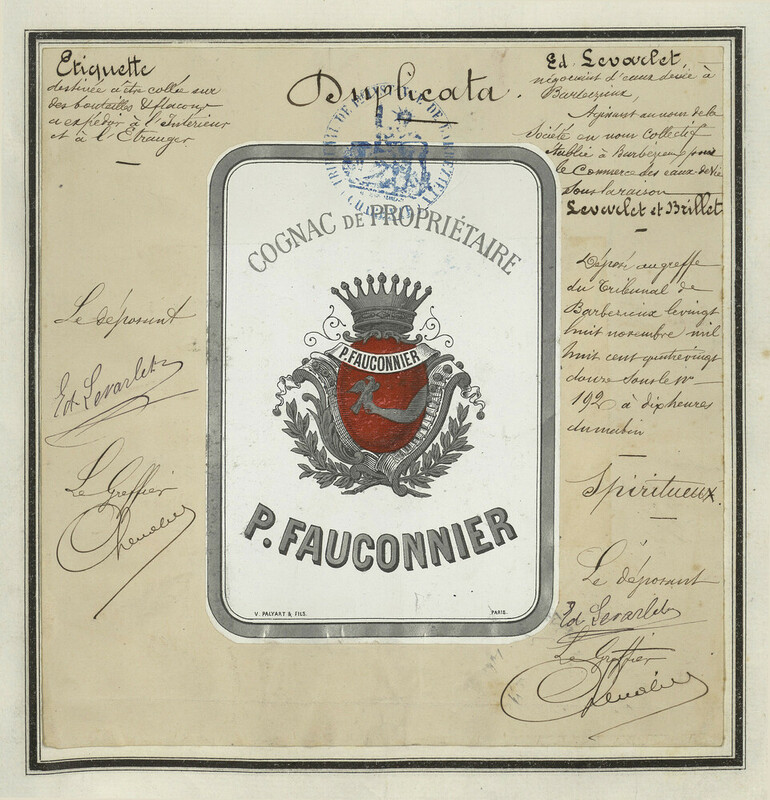 Etiquette
destinée à être collée sur
des bouteilles & flacons
a expédier à l'Intérieur
et à l'Etranger
Duplicata.
Ed. Levarlet,
négociant d'eaux devie à
Barbezieux,
Agissant au nom de la
Société en nom Collectif
établie à Barbezieux, pour
le Commerce des eaux-de-Vie
sous la raison
Levarlet et Brillet
TRIBUNAL DE DE BARBEZIEUX
COGNAC DE PROPRIÉTAIRE
P. FAUCONNIER
P. FAUCONNIER
V. PALYART & FILS. PARIS.
Le déposant
Ed Levarlet
Le Greffier
Déposé au greffe
du Tribunal de
Barbezieux le vingt
huit novembre mil
huit cent quatrevingt
douze sous le No
192 à dix heures
du matin
Spiritueux.
Le déposant
Ed Levarlet
Le Greffier